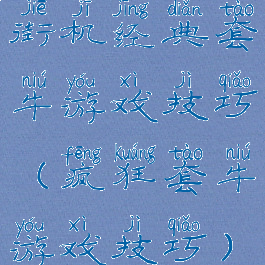 jiē jī jīng diǎn tào
街机经典套
niú yóu xì jì qiǎo
牛游戏技巧
fēng kuáng tào niú
(疯狂套牛
yóu xì jì qiǎo
游戏技巧)